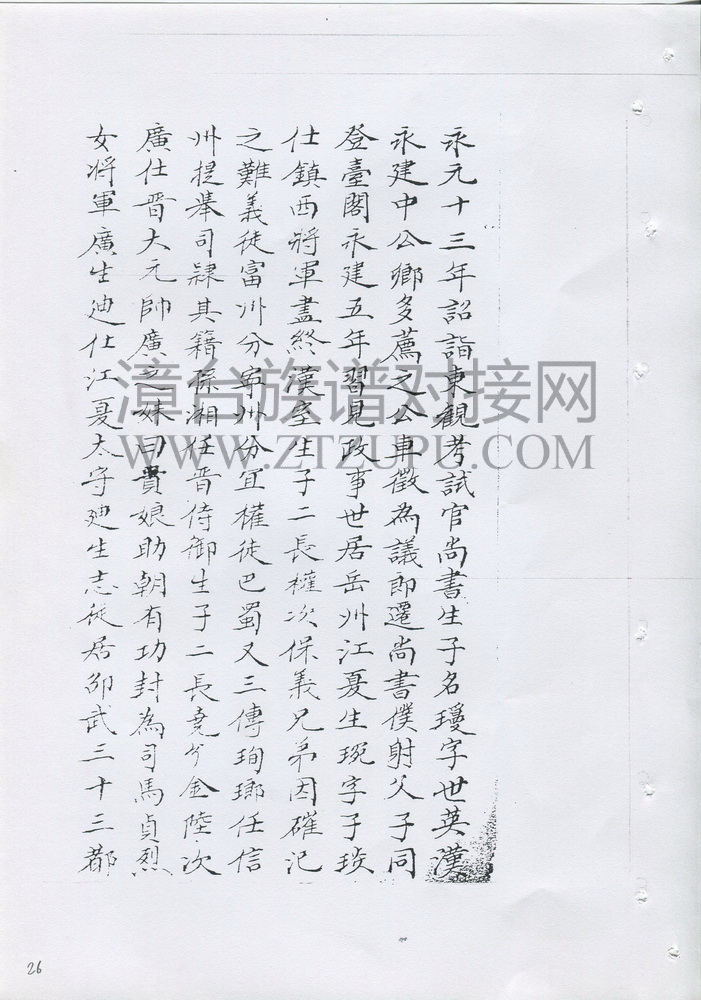 永元十三年詔詣東觀考試官尚書生子名瓊字世英漢
永建中公鄉多薦之公車徵為議郎遷尚書僕射父子同
登臺閣永建五年習見政事世居岳州江夏生琬字子琰
仕鎮西將軍盡終漢室生子二長權次保義兄弟因確氾
之難義徒富州分寧州分宜權徒巴蜀又三傳珣瑯任信
州提舉司隸其籍孫湘任晋侍御生子二長堯兮金陸次
廣仕晋大元帥廣之妹曰貴娘助朝有功封為司馬貞烈
女将軍廣生迪仕江夏太守迪生志徙居邵武三十三都
漳台族谱对接网
WWW.ZTZUPU.COM
26